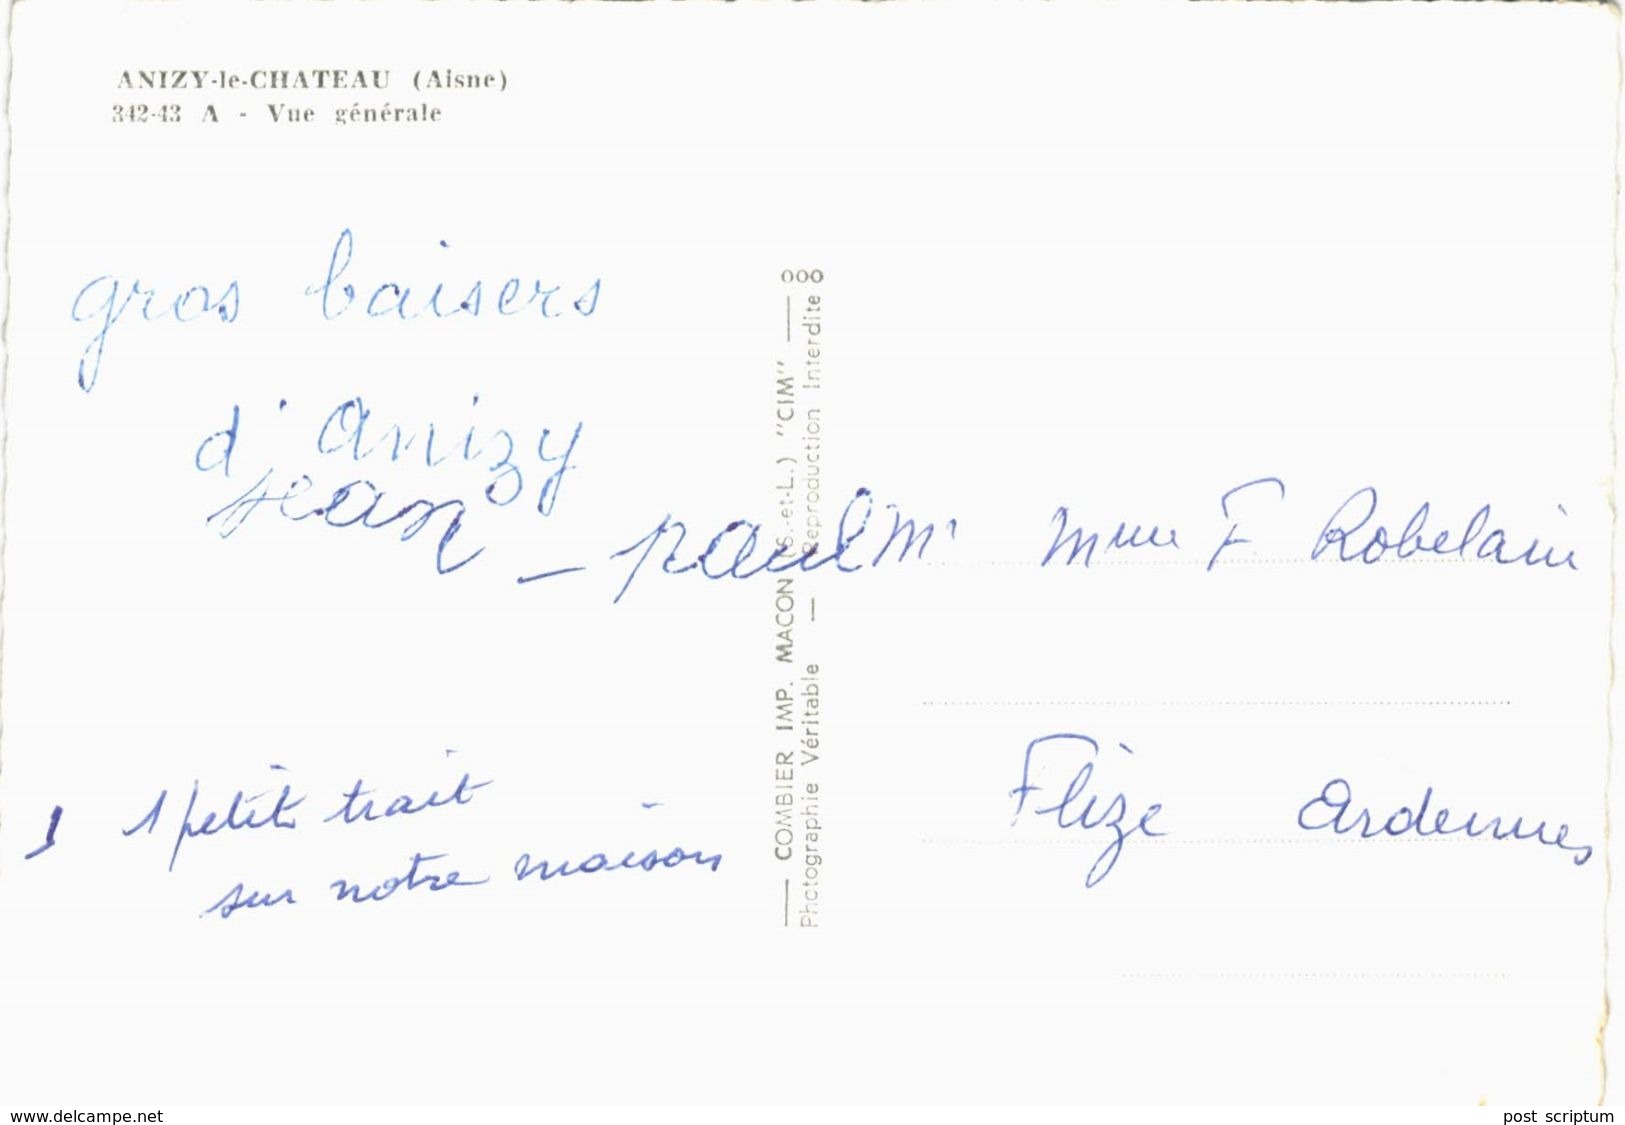 ANIZY-le-CHATEAU (Aisne)
342-43 A - Vue générale
gros baisers
d'Anizy
Jean
- paul
1 petit trait
sur notre maison
COMBIER IMP. MACON (S.-et-L.) "CIM"
Photographie Véritable — Reproduction Interdite
000
Mr Mme F Robelain
Flize Ardennes
www.delcampe.net
post scriptum